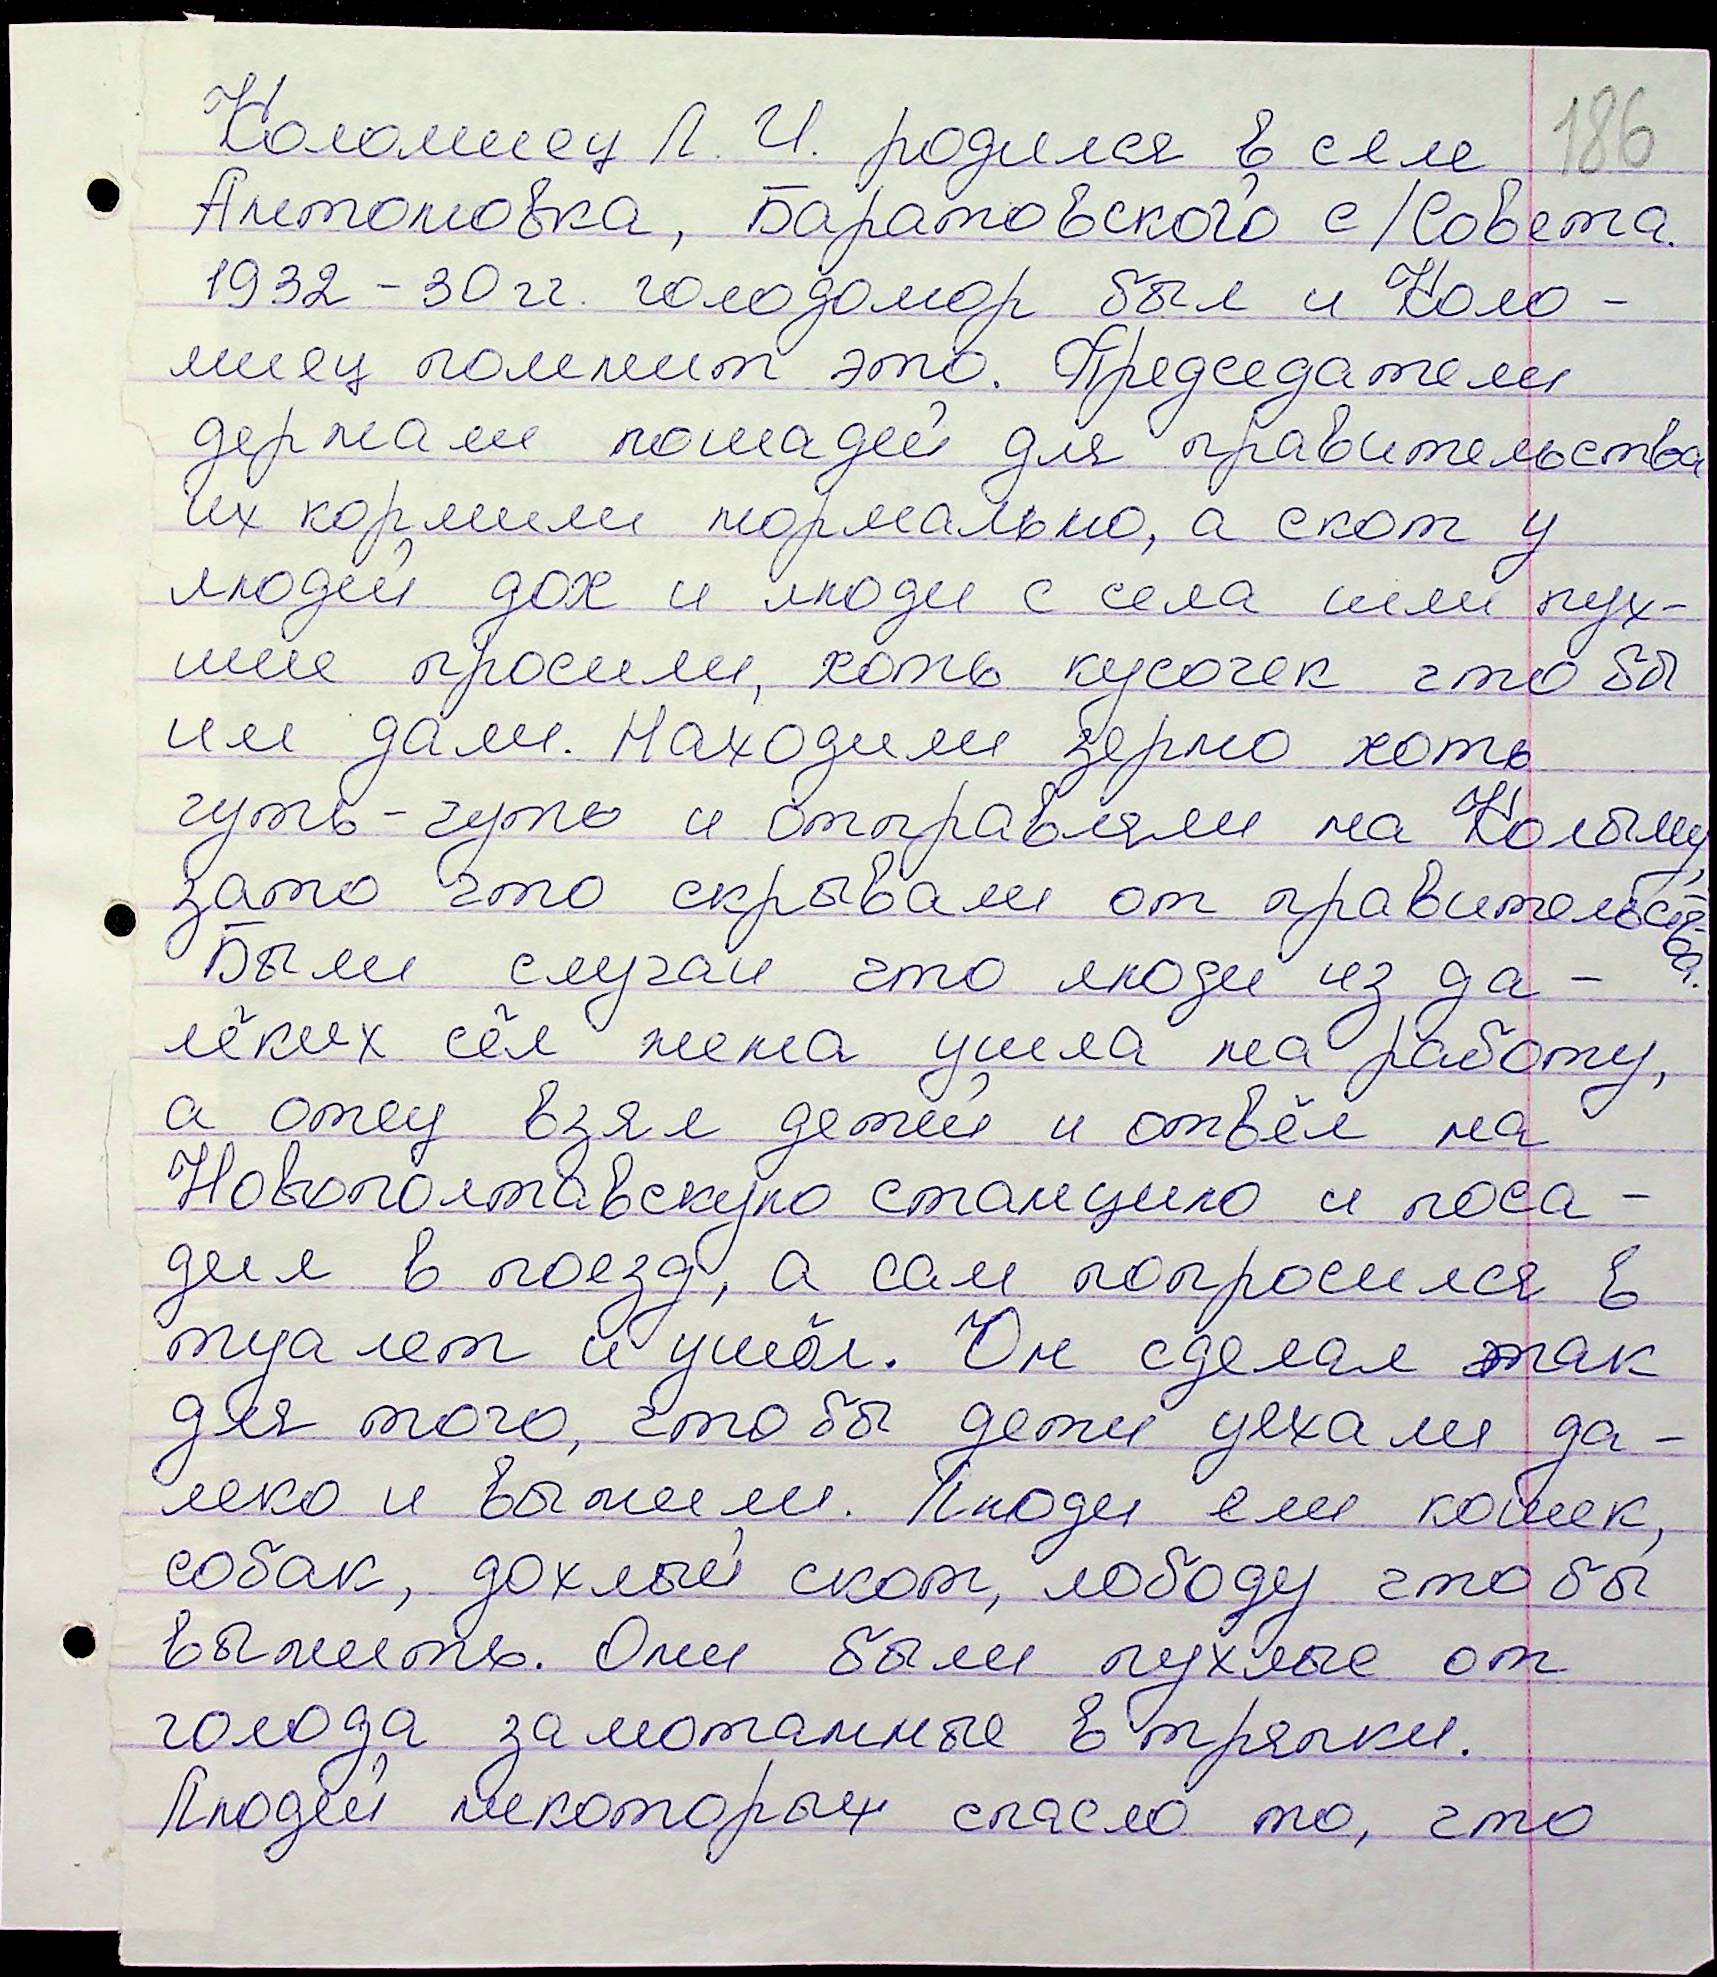 186
Коломиец Л. И. родился в селе
Антоновка, Баратовского с/Совета.
1932-30 гг. голодомор был и Коло-
миец помнит это. Председатели
держали лошадей для правительства
их кормили нормально, а скот у
людей дох и люди с села шли пух-
шие просили, хоть кусочек что бы
им дали. Находили зерно хоть
чуть-чуть и отправляли на Колыму,
зато что скрывали от правительства.
Были случаи что люди из да-
лёких сёл жена ушла на работу,
а отец взял детей и отвёл на
Новополтавскую станцию и поса-
дил в поезд, а сам попросился в
туалет и ушёл. Он сделал так
для того, что бы дети уехали да-
леко и выжили. Люди ели кошек,
собак, дохлый скот, лободу что бы
выжить. Они были пухлые от
голода замотанные в тряпки.
Людей некоторых спасло то, что